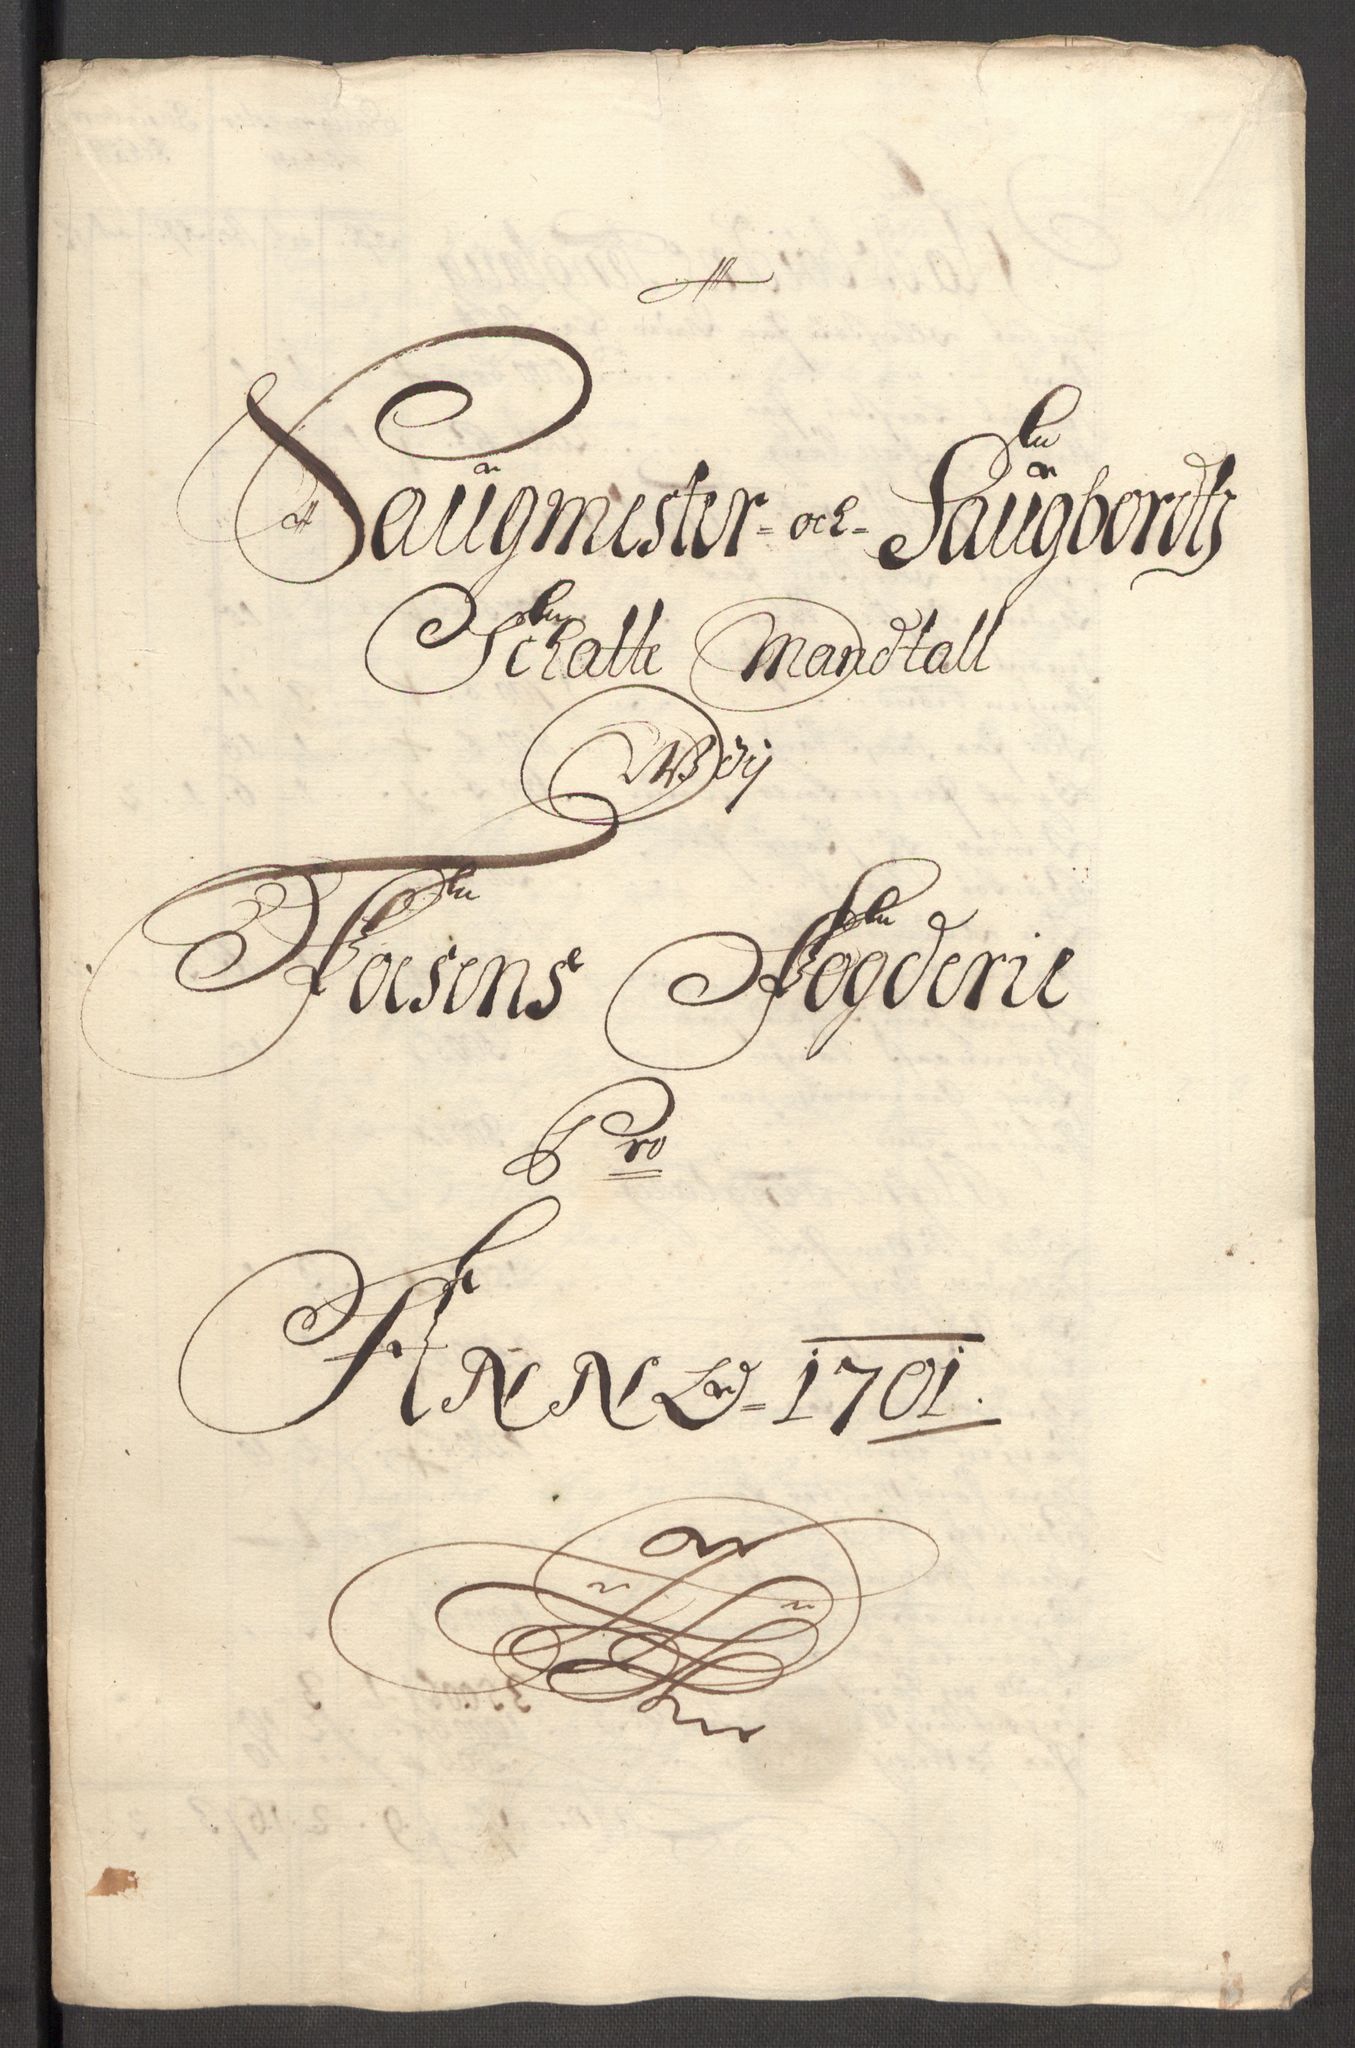 Saugmester- och- Saugbordtz
Schatte Mandtall
Udj
Foesens Fogderie
Pro
ANNO- 1701.